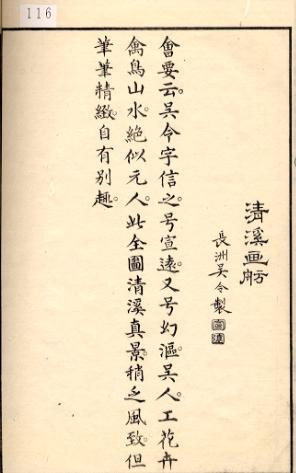 116
清溪画舫
長洲吴令製
會要云。吴令字信之。号宣遠。又号幻漚。吴人。工花卉
禽鳥山水。絶似元人。此全圖清溪真景。稍乏風致。但
筆筆精緻。自有別趣。